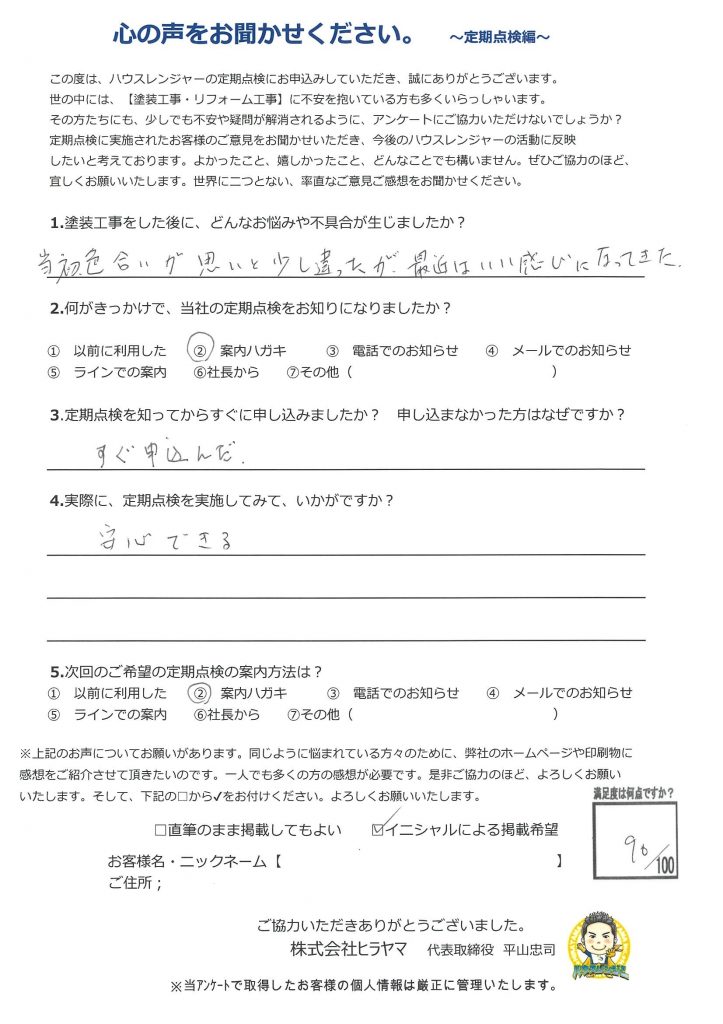 心の声をお聞かせください。 ～定期点検編～
この度は、ハウスレンジャーの定期点検にお申込みしていただき、誠にありがとうございます。
世の中には、【塗装工事・リフォーム工事】に不安を抱いている方も多くいらっしゃいます。
その方たちにも、少しでも不安や疑問が解消されるように、アンケートにご協力いただけないでしょうか？
定期点検に実施されたお客様のご意見をお聞かせいただき、今後のハウスレンジャーの活動に反映
したいと考えております。よかったこと、嬉しかったこと、どんなことでも構いません。ぜひご協力のほど、
宜しくお願いいたします。世界に二つとない、率直なご意見ご感想をお聞かせください。
1.塗装工事をした後に、どんなお悩みや不具合が生じましたか？
当初色合いが思いと少し違ったが、最近はいい感じになってきた.
2.何がきっかけで、当社の定期点検をお知りになりましたか？
① 以前に利用した ② 案内ハガキ ③ 電話でのお知らせ ④ メールでのお知らせ
⑤ ラインでの案内 ⑥社長から ⑦その他（ ）
3.定期点検を知ってからすぐに申し込みましたか？ 申し込まなかった方はなぜですか？
すぐ申込んだ.
4.実際に、定期点検を実施してみて、いかがですか？
安心できる
5.次回のご希望の定期点検の案内方法は？
① 以前に利用した ② 案内ハガキ ③ 電話でのお知らせ ④ メールでのお知らせ
⑤ ラインでの案内 ⑥社長から ⑦その他（ ）
※上記のお声についてお願いがあります。同じように悩まれている方々のために、弊社のホームページや印刷物に
感想をご紹介させて頂きたいのです。一人でも多くの方の感想が必要です。是非ご協力のほど、よろしくお願い
いたします。そして、下記の□から✔をお付けください。よろしくお願いいたします。
満足度は何点ですか？
□直筆のまま掲載してもよい ☑イニシャルによる掲載希望
90/100
お客様名・ニックネーム【 】
ご住所；
ご協力いただきありがとうございました。
株式会社ヒラヤマ 代表取締役 平山忠司
※当ｱﾝｹｰﾄで取得したお客様の個人情報は厳正に管理いたします。